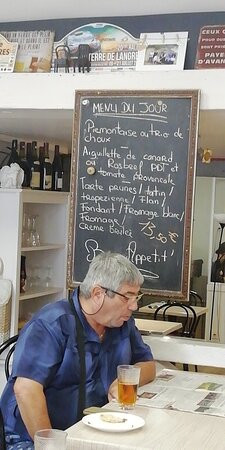 TERRE DE LANGRES
CEUX Q
PAYEN
D'AVAN
MENU DU JOUR
Piemontaise ou trio de
choux
Aiguillette de canard
ou Rosbeef PDT et
tomate provencale
Tarte prunes / tatin /
tropezienne / Flan /
Fondant / Fromage blanc /
Fromage /
Creme Brulée
13,50€
Bon Appetit'